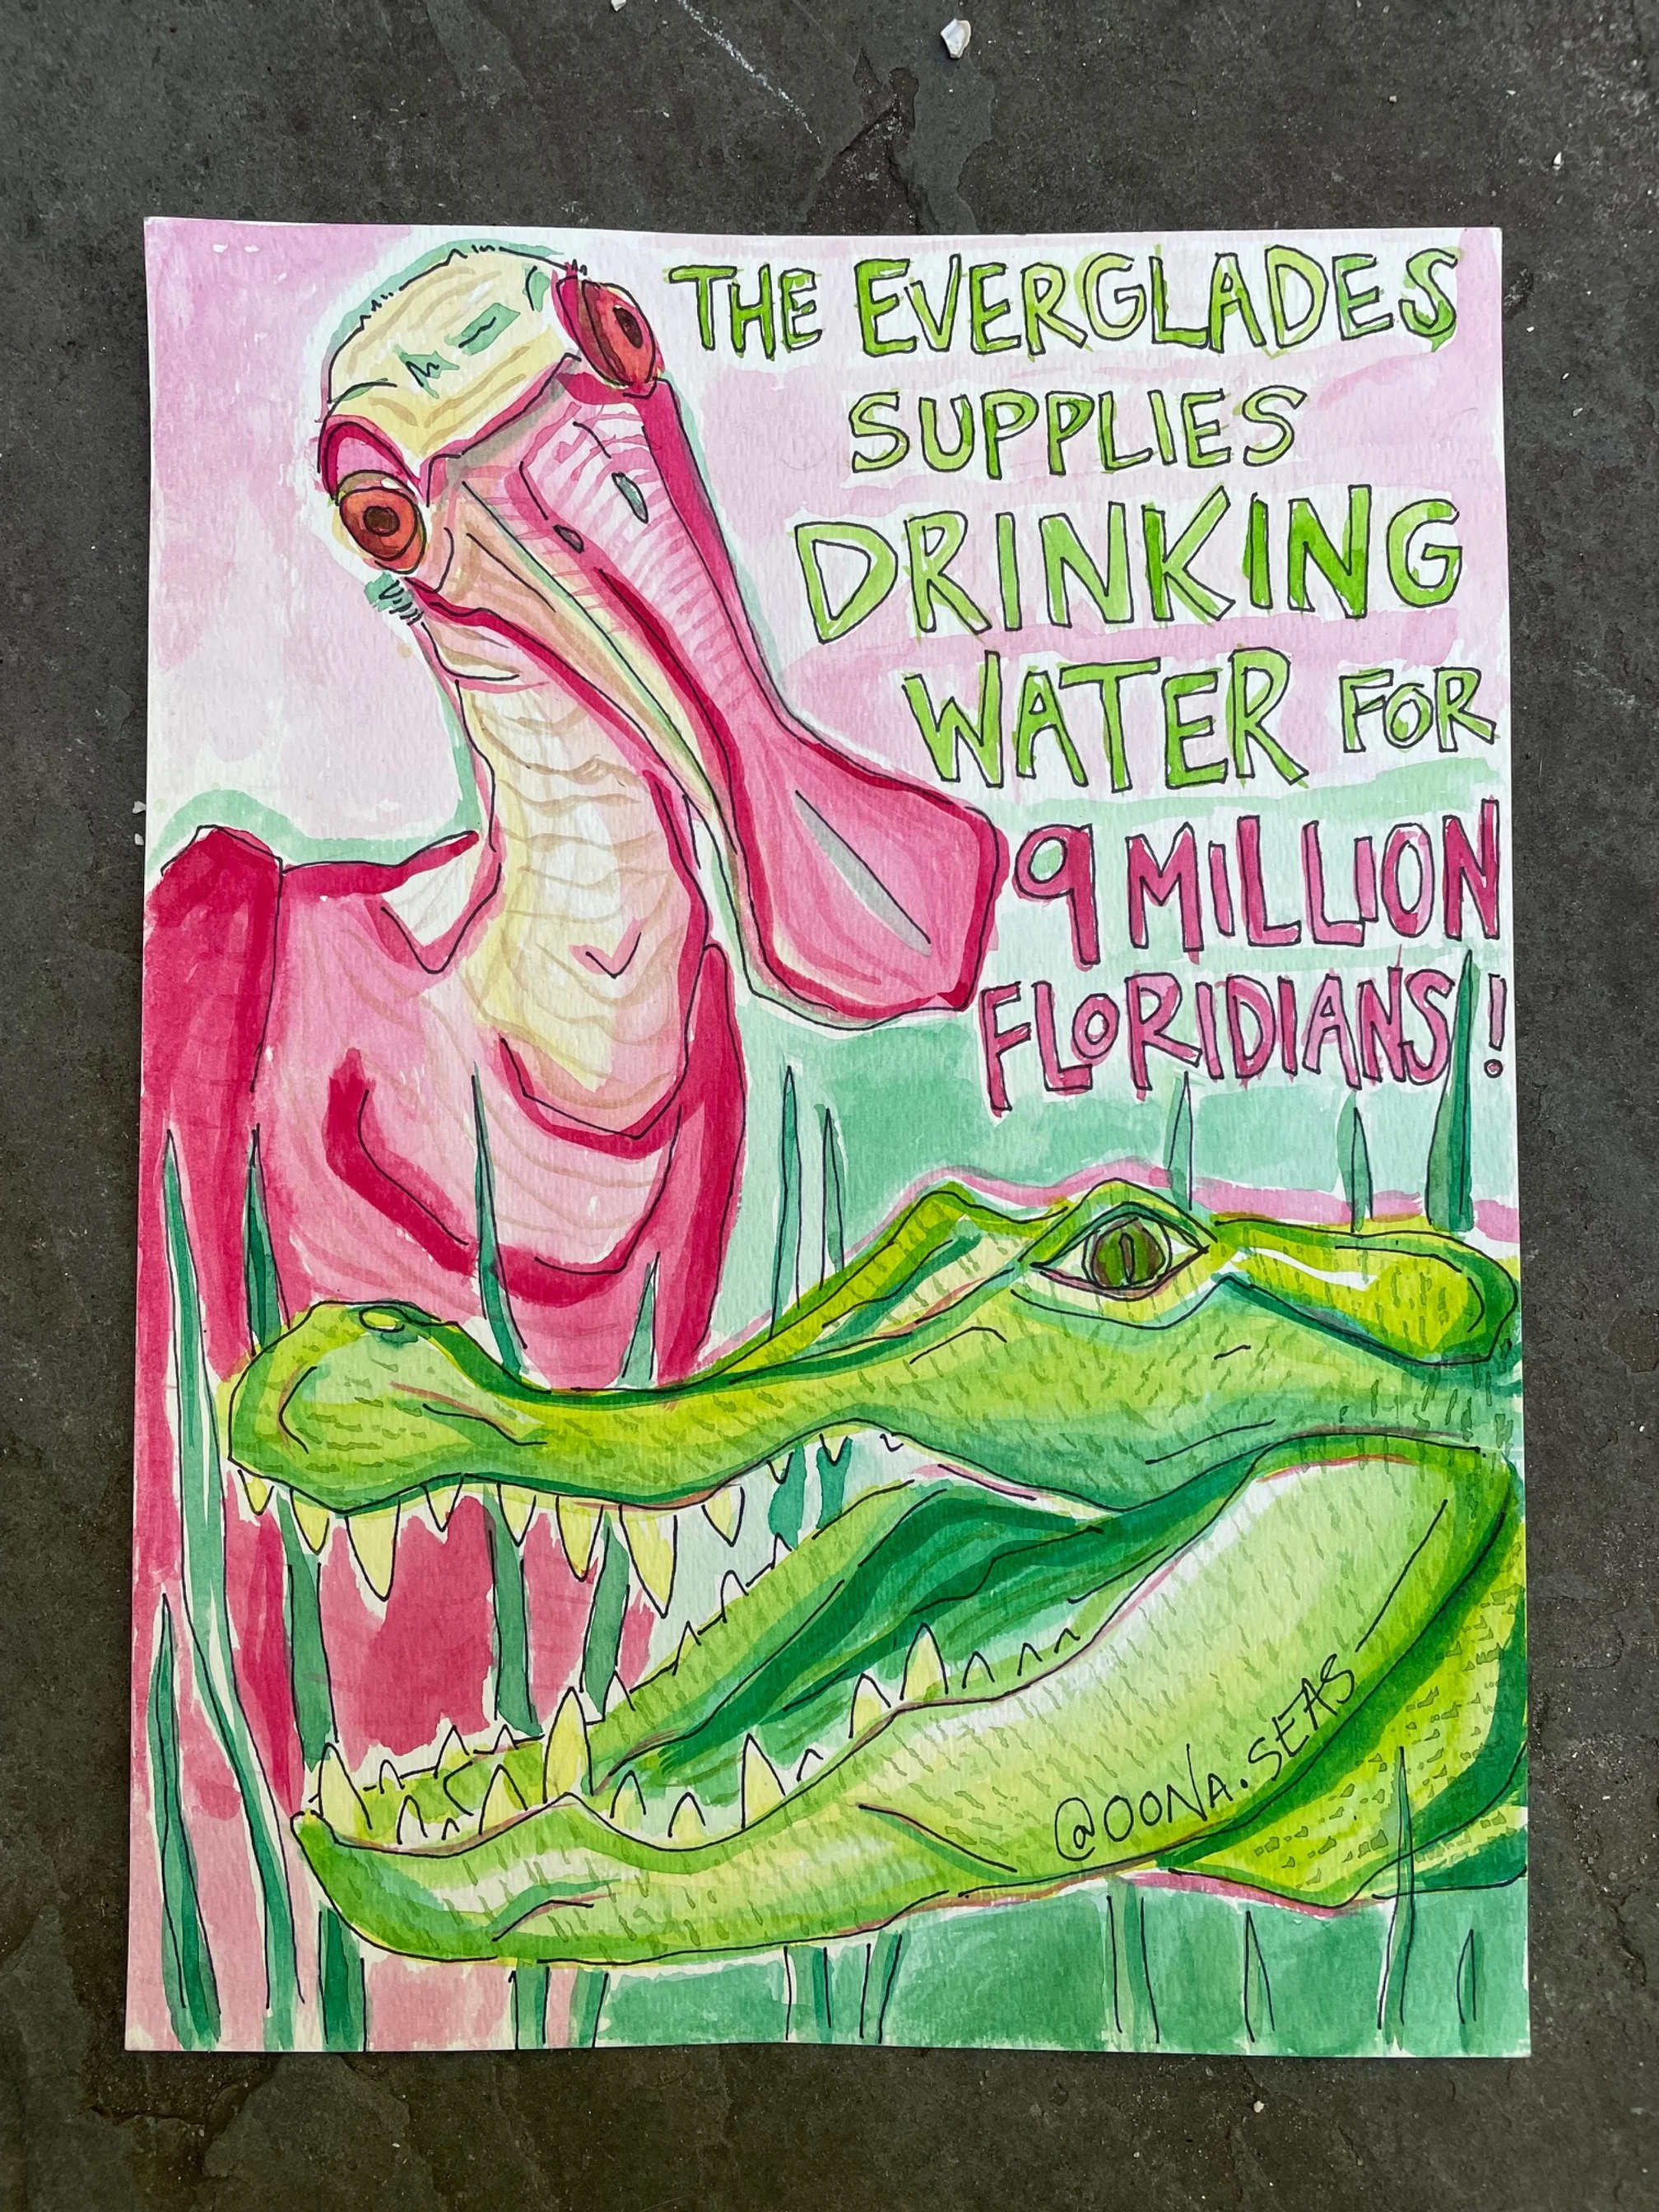 THE EVERGLADES
SUPPLIES
DRINKING
WATER FOR
9 MILLION
FLORIDIANS!
@OONA.SEAS